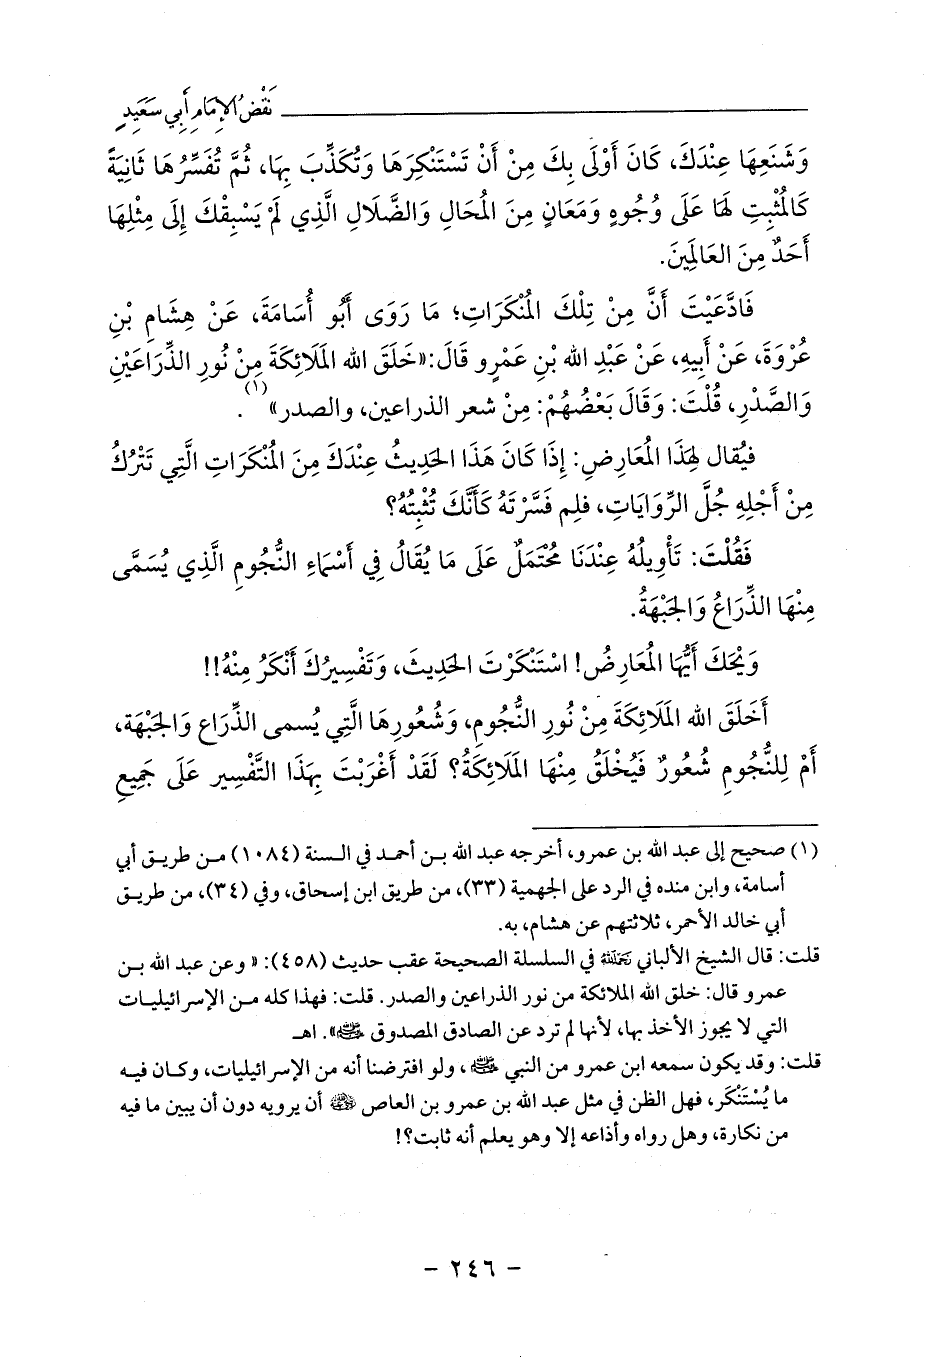 نَقْضُ الإِمَامِ أَبِي سَعِيدٍ
وَشَنَعِهَا عِنْدَكَ، كَانَ أَوْلَى بِكَ مِنْ أَنْ تَسْتَنْكِرَهَا وَتُكَذِّبَ بِهَا، ثُمَّ تُفَسِّرُهَا ثَانِيَةً
كَالْمُثْبِتِ لَهَا عَلَى وُجُوهٍ وَمَعَانٍ مِنَ المُحَالِ وَالضَّلَالِ الَّذِي لَمْ يَسْبِقْكَ إِلَى مِثْلِهَا
أَحَدٌ مِنَ العَالَمِينَ.
فَادَّعَيْتَ أَنَّ مِنْ تِلْكَ المُنْكَرَاتِ؛ مَا رَوَى أَبُو أُسَامَةَ، عَنْ هِشَامِ بْنِ
عُرْوَةَ، عَنْ أَبِيهِ، عَنْ عَبْدِ الله بْنِ عَمْرٍو قَالَ:«خَلَقَ الله المَلَائِكَةَ مِنْ نُورِ الذِّرَاعَيْنِ
وَالصَّدْرِ، قُلْتَ: وَقَالَ بَعْضُهُمْ: مِنْ شعر الذراعين، والصدر» (١).
فيُقال لِهَذَا المُعَارِضِ: إِذَا كَانَ هَذَا الحَدِيثُ عِنْدَكَ مِنَ المُنْكَرَاتِ الَّتِي تَتْرُكُ
مِنْ أَجْلِهِ جُلَّ الرِّوَايَاتِ، فلِم فَسَّرْتَهُ كَأَنَّكَ تُثْبِتُهُ؟
فَقُلْتَ: تَأْوِيلُهُ عِنْدَنَا مُحْتَمَلٌ عَلَى مَا يُقَالُ فِي أَسْمَاءِ النُّجُومِ الَّذِي يُسَمَّى
مِنْهَا الذِّرَاعُ وَالجَبْهَةُ.
وَيْحَكَ أَيُّهَا المُعَارِضُ! اسْتَنْكَرْتَ الحَدِيثَ، وَتَفْسِيرُكَ أَنْكَرُ مِنْهُ!!
أَخَلَقَ الله المَلَائِكَةَ مِنْ نُورِ النُّجُومِ، وَشُعُورِهَا الَّتِي يُسمى الذِّرَاع وَالجَبْهَة،
أَمْ لِلنُّجُومِ شُعُورٌ فَيُخْلَقُ مِنْهَا المَلَائِكَةُ؟ لَقَدْ أَغْرَبْتَ بِهَذَا التَّفْسِيرِ عَلَى جَمِيعِ
(١) صحيح إلى عبد الله بن عمرو، أخرجه عبد الله بن أحمد في السنة (١٠٨٤) من طريق أبي
أسامة، وابن منده في الرد على الجهمية (٣٣)، من طريق ابن إسحاق، وفي (٣٤)، من طريق
أبي خالد الأحمر، ثلاثتهم عن هشام، به.
قلت: قال الشيخ الألباني رحمه الله في السلسلة الصحيحة عقب حديث (٤٥٨): « وعن عبد الله بن
عمرو قال: خلق الله الملائكة من نور الذراعين والصدر. قلت: فهذا كله من الإسرائيليات
التي لا يجوز الأخذ بها، لأنها لم ترد عن الصادق المصدوق ﷺ». اهـ
قلت: وقد يكون سمعه ابن عمرو من النبي ﷺ، ولو افترضنا أنه من الإسرائيليات، وكان فيه
ما يُسْتَنْكَر، فهل الظن في مثل عبد الله بن عمرو بن العاص أن يرويه دون أن يبين ما فيه
من نكارة، وهل رواه وأذاعه إلا وهو يعلم أنه ثابت؟!
- ٢٤٦ -